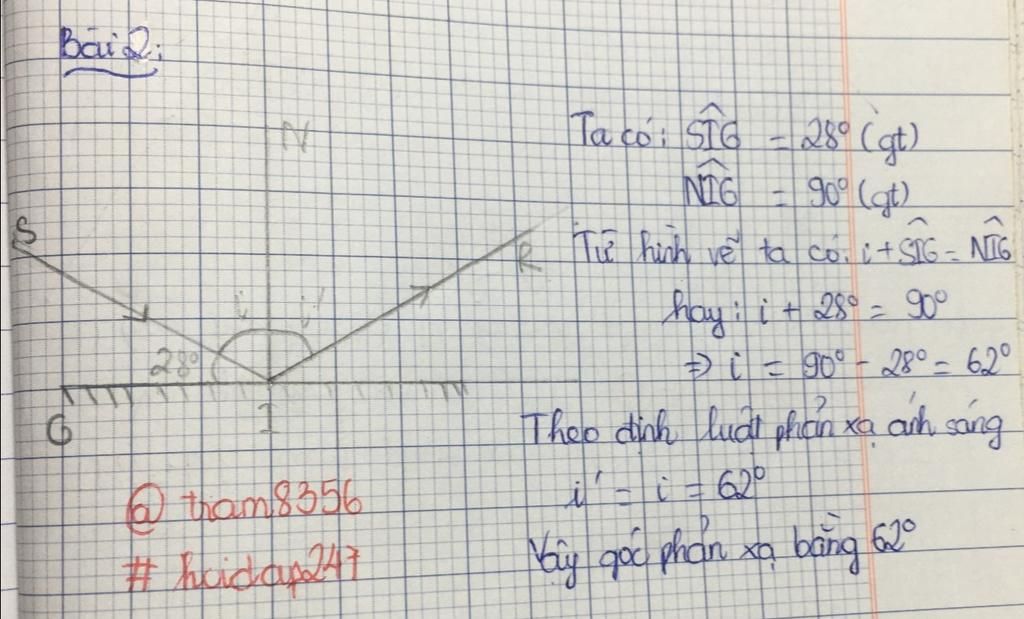 Bài 2:
N
S
R
i i'
28°
G
I
Ta có: SIG = 28° (gt)
NIG = 90° (gt)
Từ hình vẽ ta có: i + SIG = NIG
hay: i + 28° = 90°
=> i = 90° - 28° = 62°
Theo định luật phản xạ ánh sáng
i' = i = 62°
Vậy góc phản xạ bằng 62°
@ tram8356
# hoidap247